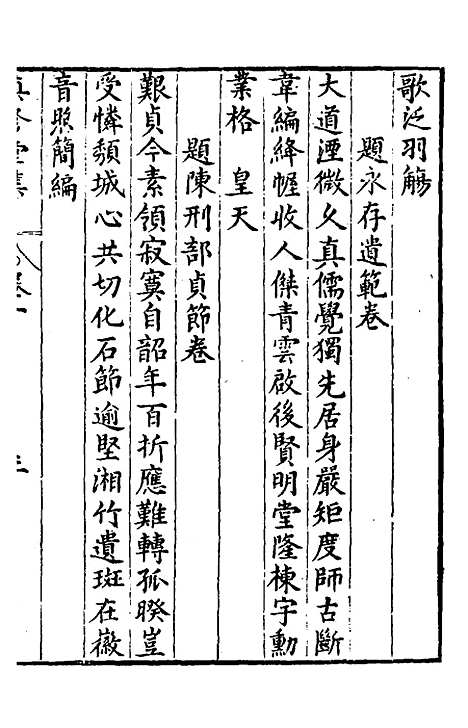 歌泛羽觴
題永存遺範卷
大道湮微久真儒覺獨先居身嚴矩度師古斷
韋編絳幄收人傑青雲啟後賢明堂隆棟宇勳
業格 皇天
題陳刑部貞節卷
艱貞今素領寂寞自韶年百折應難轉孤睽豈
受憐頹城心共切化石節逾堅湘竹遺斑在薇
音照簡編
卷一